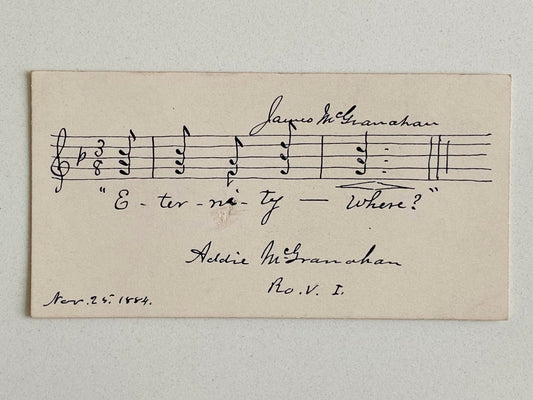 James McGranahan
3
8
"E-ter-ni-ty — Where?"
Addie McGranahan
Ro. V. I.
Nov. 25. 1884.